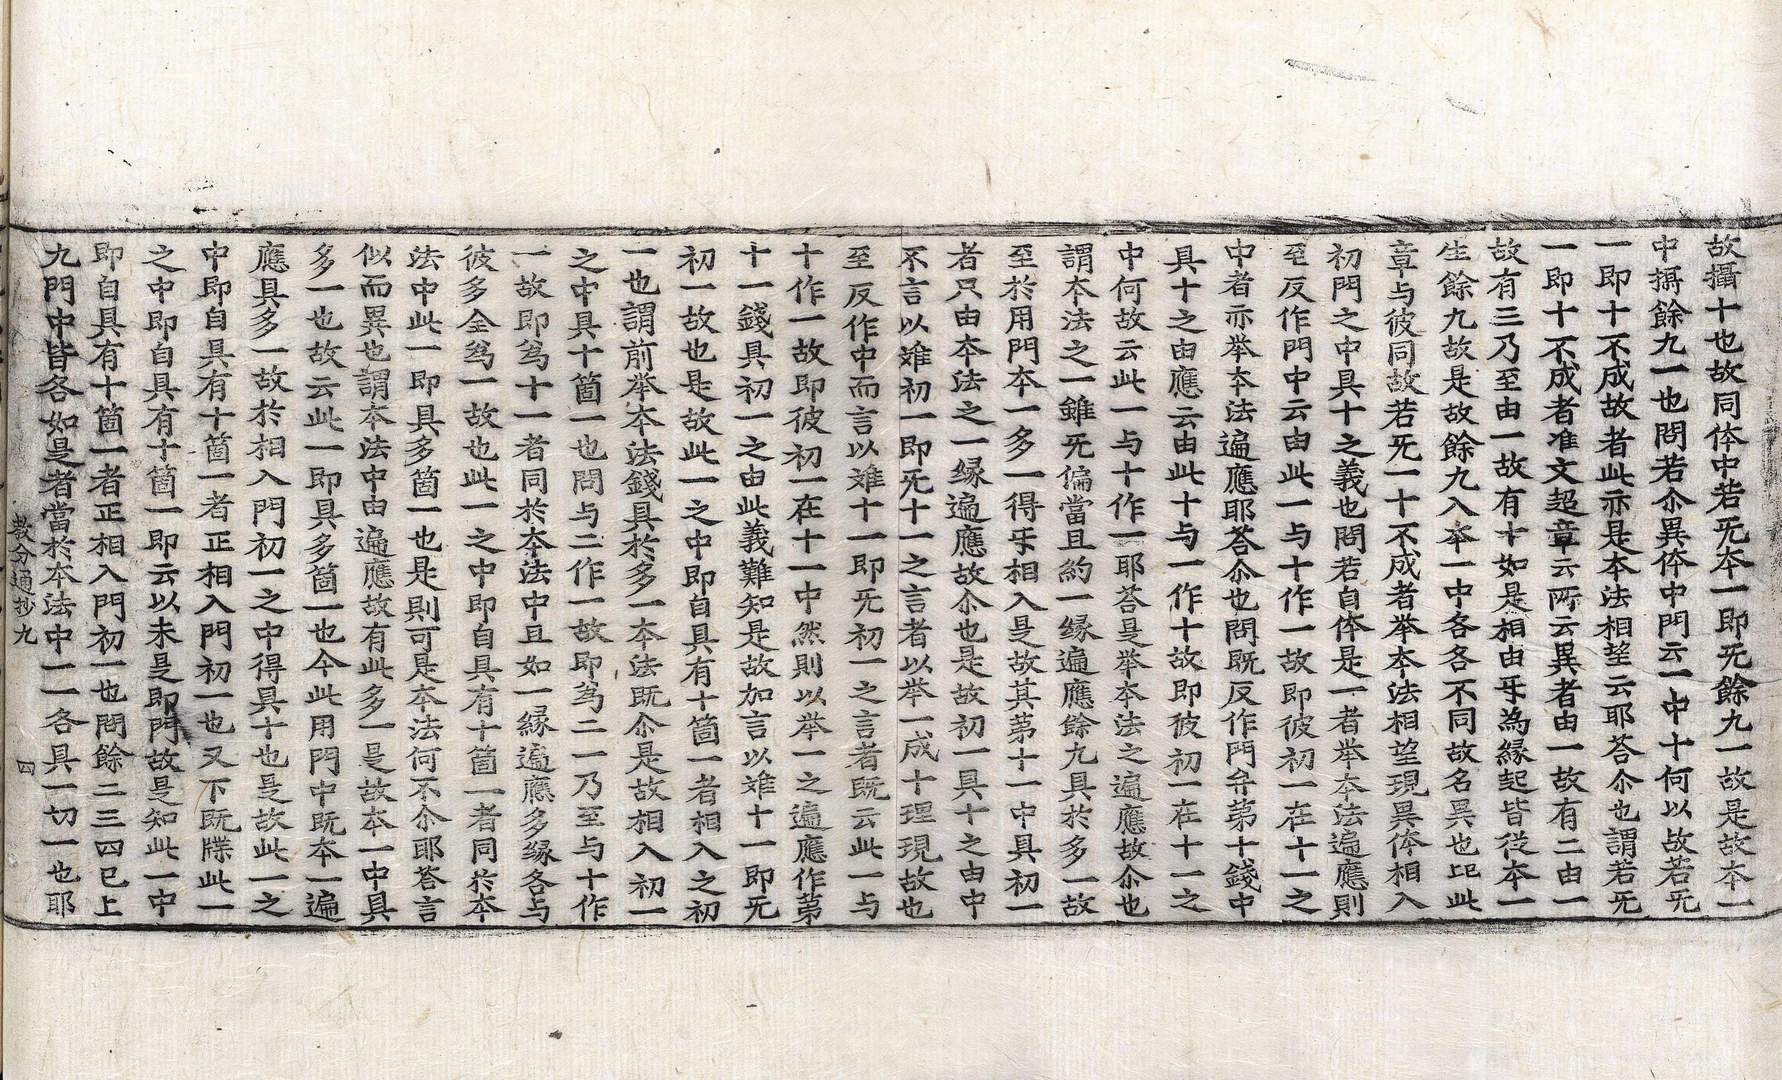 故攝十也故同体中若旡本一即旡餘九一故是故本一
中攝餘九一也問若尒異体中門云一中十何以故若旡
一即十不成故者此亦是本法相望云耶荅尒也謂若旡
一即十不成者准文超章云所云異者由一故有二由一
故有三乃至由一故有十如是相由㸦為縁起皆從本一
生餘九故是故餘九入本一中各各不同故名異也民此
章与彼同故若旡一十不成者举本法相望現異体相入
初門之中具十之義也問若自体是一者举本法遍應則
至反作門中云由此一与十作一故即彼初一在十一之
中者亦举本法遍應耶荅尒也問既反作門弁第十錢中
具十之由應云由此十与一作十故即彼初一在十一之
中何故云此一与十作一耶荅是举本法之遍應故尒也
謂本法之一錐旡偏當且約一縁遍應餘九具於多一故
至於用門本一多一得㸦相入是故其第十一中具初一
者只由本法之一縁遍應故尒也是故初一具十之由中
不言以难初一即旡十一之言者以举一成十理現故也
至反作中而言以难十一即旡初一之言者既云此一与
十作一故即彼初一在十一中然則以举一之遍應作第
十一錢具初一之由此義難知是故加言以难十一即旡
初一故也是故此一之中即自具有十箇一者相入之初
一也謂前举本法錢具於多一本法既尒是故相入初一
之中具十箇一也問与二作一故即為二一乃至与十作
一故即為十一者同於本法中且如一縁遍應多縁各与
彼多全為一故也此一之中即自具有十箇一者同於本
法中此一即具多箇一也是則可是本法何不尒耶荅言
似而異也謂本法中由遍應故有此多一是故本一中具
多一也故云此一即具多箇一也今此用門中既本一遍
應具多一故於相入門初一之中得具十也是故此一之
中即自具有十箇一者正相入門初一也又下既牒此一
之中即自具有十箇一即云以未是即門故是知此一中
即自具有十箇一者正相入門初一也問餘二三四已上
九門中皆各如是者當於本法中一一各具一切一也耶
教分通抄九　四